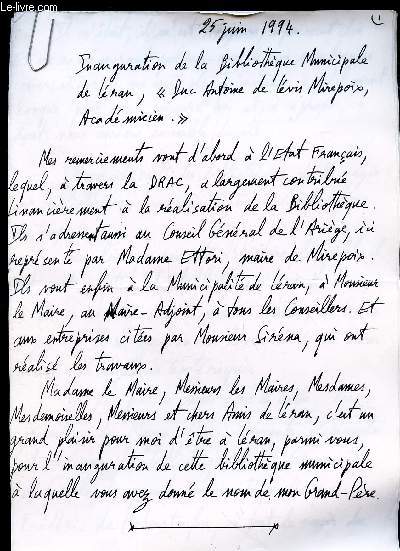 Le-livre.com
25 juin 1994.
1
Inauguration de la Bibliothèque Municipale
de Léran, « Duc Antoine de Lévis Mirepoix,
Académicien. »
Mes remerciements vont d'abord à l'Etat Français,
lequel, à travers la DRAC, a largement contribué
financièrement à la réalisation de la Bibliothèque.
Ils s'adressent aussi au Conseil Général de l'Ariège, ici
représenté par Madame Ettori, maire de Mirepoix.
Ils vont enfin à la Municipalité de Léran, à Monsieur
le Maire, au Maire-Adjoint, à tous les Conseillers. Et
aux entreprises citées par Monsieur Siréna, qui ont
réalisé les travaux.
Madame le Maire, Messieurs les Maires, Mesdames,
Mesdemoiselles, Messieurs et chers Amis de Léran, c'est un
grand plaisir pour moi d'être à Léran, parmi vous,
pour l'inauguration de cette bibliothèque municipale
à laquelle vous avez donné le nom de mon Grand-Père.